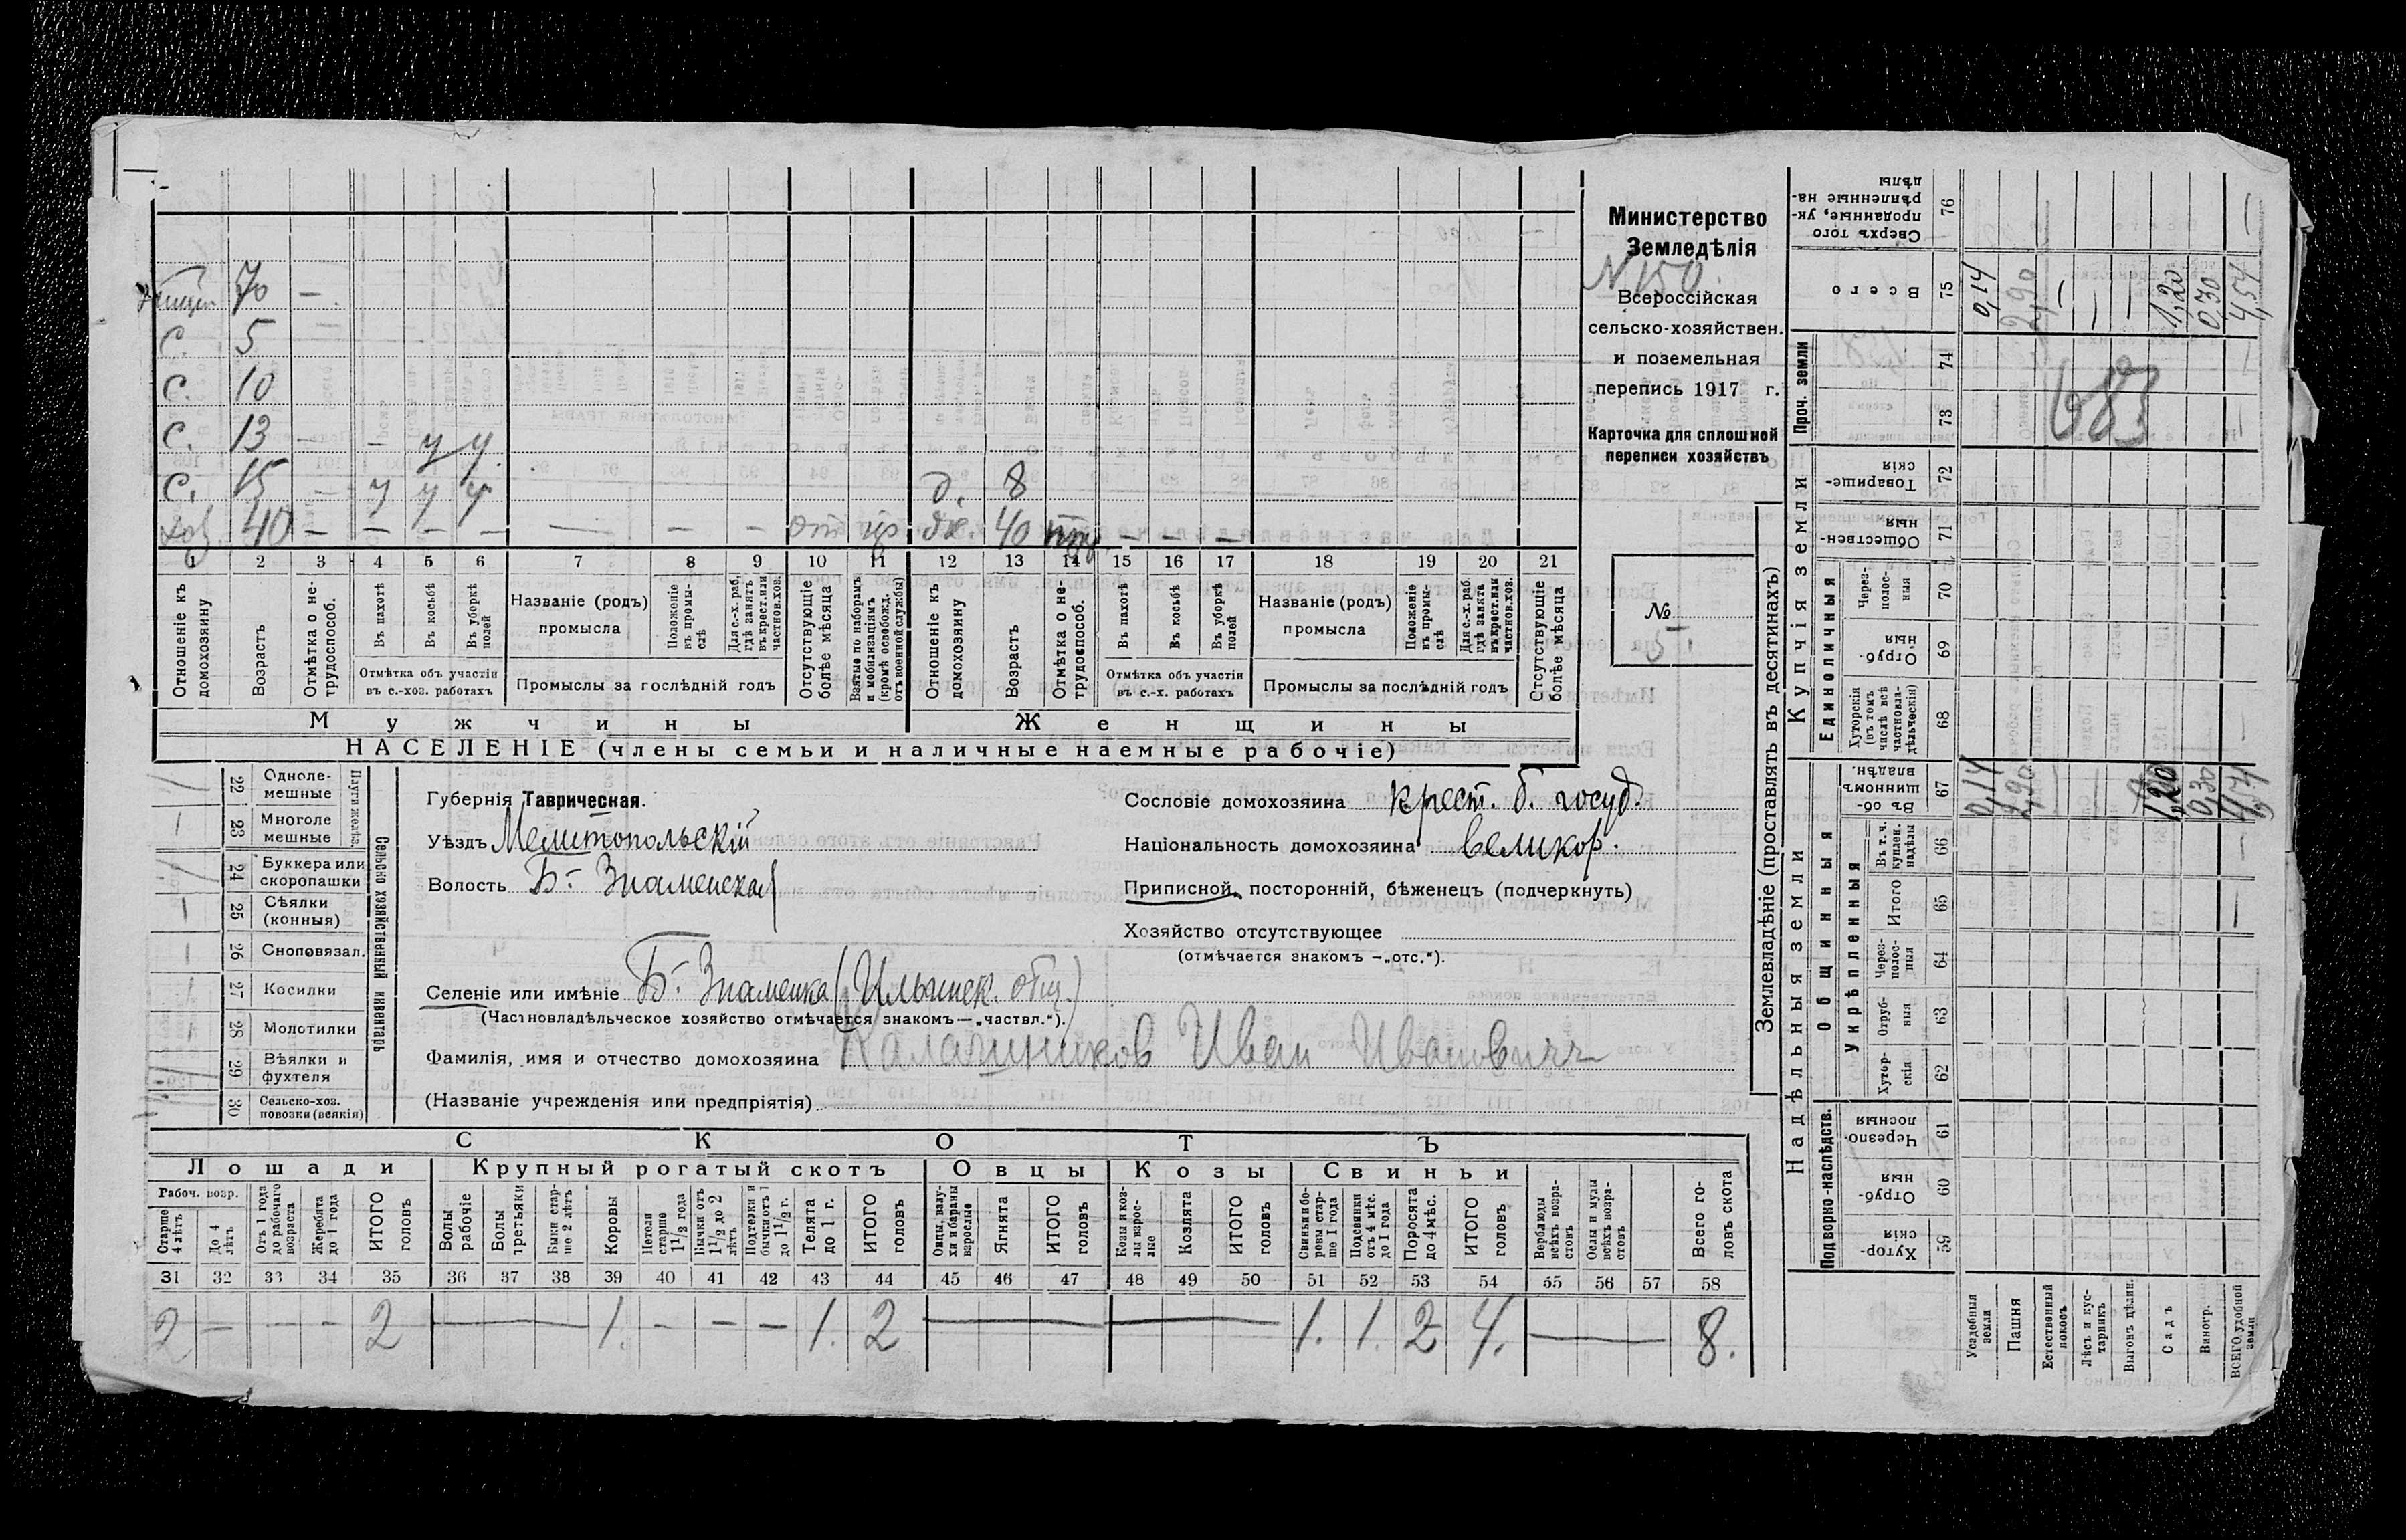 Министерство
Земледѣлія
N 150.
Всероссійская
сельско-хозяйствен.
и поземельная
перепись 1917 г.
Карточка для сплошной
переписи хозяйствъ
№
70 —
С. 5
С. 10
С. 13 — — у у
С. 15 — у у у д. 8
хоз. 40 — — — — — — — от 40 — — —
1 2 3 4 5 6 7 8 9 10 11 12 13 14 15 16 17 18 19 20 21
Отношеніе къ домохозяину
Возрастъ
Отмѣтка о не-трудоспособ.
Въ пахотѣ
Въ косьбѣ
Въ уборкѣ полей
Отмѣтка объ участіи въ с.-хоз. работахъ
Названіе (родъ) промысла
Положеніе въ промы-слѣ
Для с.-х. раб. гдѣ занятъ въ крест. или частнов. хоз.
Промыслы за послѣдній годъ
Отсутствующіе болѣе мѣсяца
Взятые по наборамъ и мобилизаціямъ (кромѣ освобожд. отъ военной службы)
Отношеніе къ домохозяину
Возрастъ
Отмѣтка о не-трудоспособ.
Въ пахотѣ
Въ косьбѣ
Въ уборкѣ полей
Отмѣтка объ участіи въ с.-х. работахъ
Названіе (родъ) промысла
Положеніе въ промы-слѣ
Для с.-х. раб. гдѣ занята въ крест. или частнов. хоз.
Промыслы за послѣдній годъ
Отсутствующіе болѣе мѣсяца
Мужчины Женщины
НАСЕЛЕНІЕ (члены семьи и наличные наемные рабочіе)
Сельско хозяйственный инвентарь
Плуги желѣз.
22 Одноле-мешные
23 Многоле мешные
24 Буккера или скоропашки
25 Сѣялки (конныя)
26 Сноповязал.
27 Косилки
28 Молотилки
29 Вѣялки и фухтеля
30 Сельско-хоз. повозки (всякія)
Губернія Таврическая.
Уѣздъ Мелитопольскій
Волость Б- Знаменская
Сословіе домохозяина крест. б. госуд.
Національность домохозяина великор.
Приписной, посторонній, бѣженецъ (подчеркнуть)
Хозяйство отсутствующее
(отмѣчается знакомъ —„отс.“).
Селеніе или имѣніе Б- Знаменка (Ильинск. общ.)
(Частновладѣльческое хозяйство отмѣчается знакомъ—„частвл.“).
Фамилія, имя и отчество домохозяина Калашников Иван Иванович
(Названіе учрежденія или предпріятія)
СКОТЪ
Лошади Крупный рогатый скотъ Овцы Козы Свиньи
Рабоч. возр.
Старше 4 лѣтъ
До 4 лѣтъ
Отъ 1 года до рабочаго возраста
Жеребята до 1 года
ИТОГО головъ
Волы рабочіе
Волы третьяки
Быки стар-ше 2 лѣтъ
Коровы
Нетели старше 1 1/2 года
Бычки отъ 1 1/2 до 2 лѣтъ
Подтелки и бычки отъ 1 до 1 1/2 г.
Телята до 1 г.
ИТОГО головъ
Овцы, валу-хи и бараны взрослые
Ягнята
ИТОГО головъ
Козы и коз-лы взрос-лые
Козлята
ИТОГО головъ
Свиньи и бо-ровы стар-ше 1 года
Подсвинки отъ 4 мѣс. до 1 года
Поросята до 4 мѣс.
ИТОГО головъ
Верблюды всѣхъ возра-стовъ
Ослы и мулы всѣхъ возра-стовъ
Всего го-ловъ скота
31 32 33 34 35 36 37 38 39 40 41 42 43 44 45 46 47 48 49 50 51 52 53 54 55 56 57 58
2 — — — 2 — 1. — — — 1. 2 — — 1. 1. 2 4. — 8.
Землевладѣніе (проставлять въ десятинахъ)
Надѣльныя земли
Купчія земли
Проч. земли
Подворно-наслѣдств.
Общинныя
Укрѣпленныя
Единоличныя
Сверхъ того проданные, ук-рѣпленные на-дѣлы 76 —
Всего 75 0,14 2,90 — — — 1,20 0,30 4,54
74
73
683
Товарище-скія 72
Обществен-ныя 71
Через-полос-ныя 70
Отруб-ныя 69
Хуторскія (въ томъ числѣ всѣ частновла-дѣльческія) 68
Въ об-щинномъ владѣн. 67 0,14 2,90 1,20 0,30
Въ т. ч. куплен. надѣлы 66
Итого 65
Через-полос-ныя 64
Отруб-ныя 63
Хутор-скія 62
Черезпо-лосныя 61
Отруб-ныя 60
Хутор-скія 59
Усадебныя земли
Пашня
Естественный покосъ
Лѣсъ и кус-тарникъ
Выгонъ цѣлин.
Садъ
Виногр.
ВСЕГО удобной земли